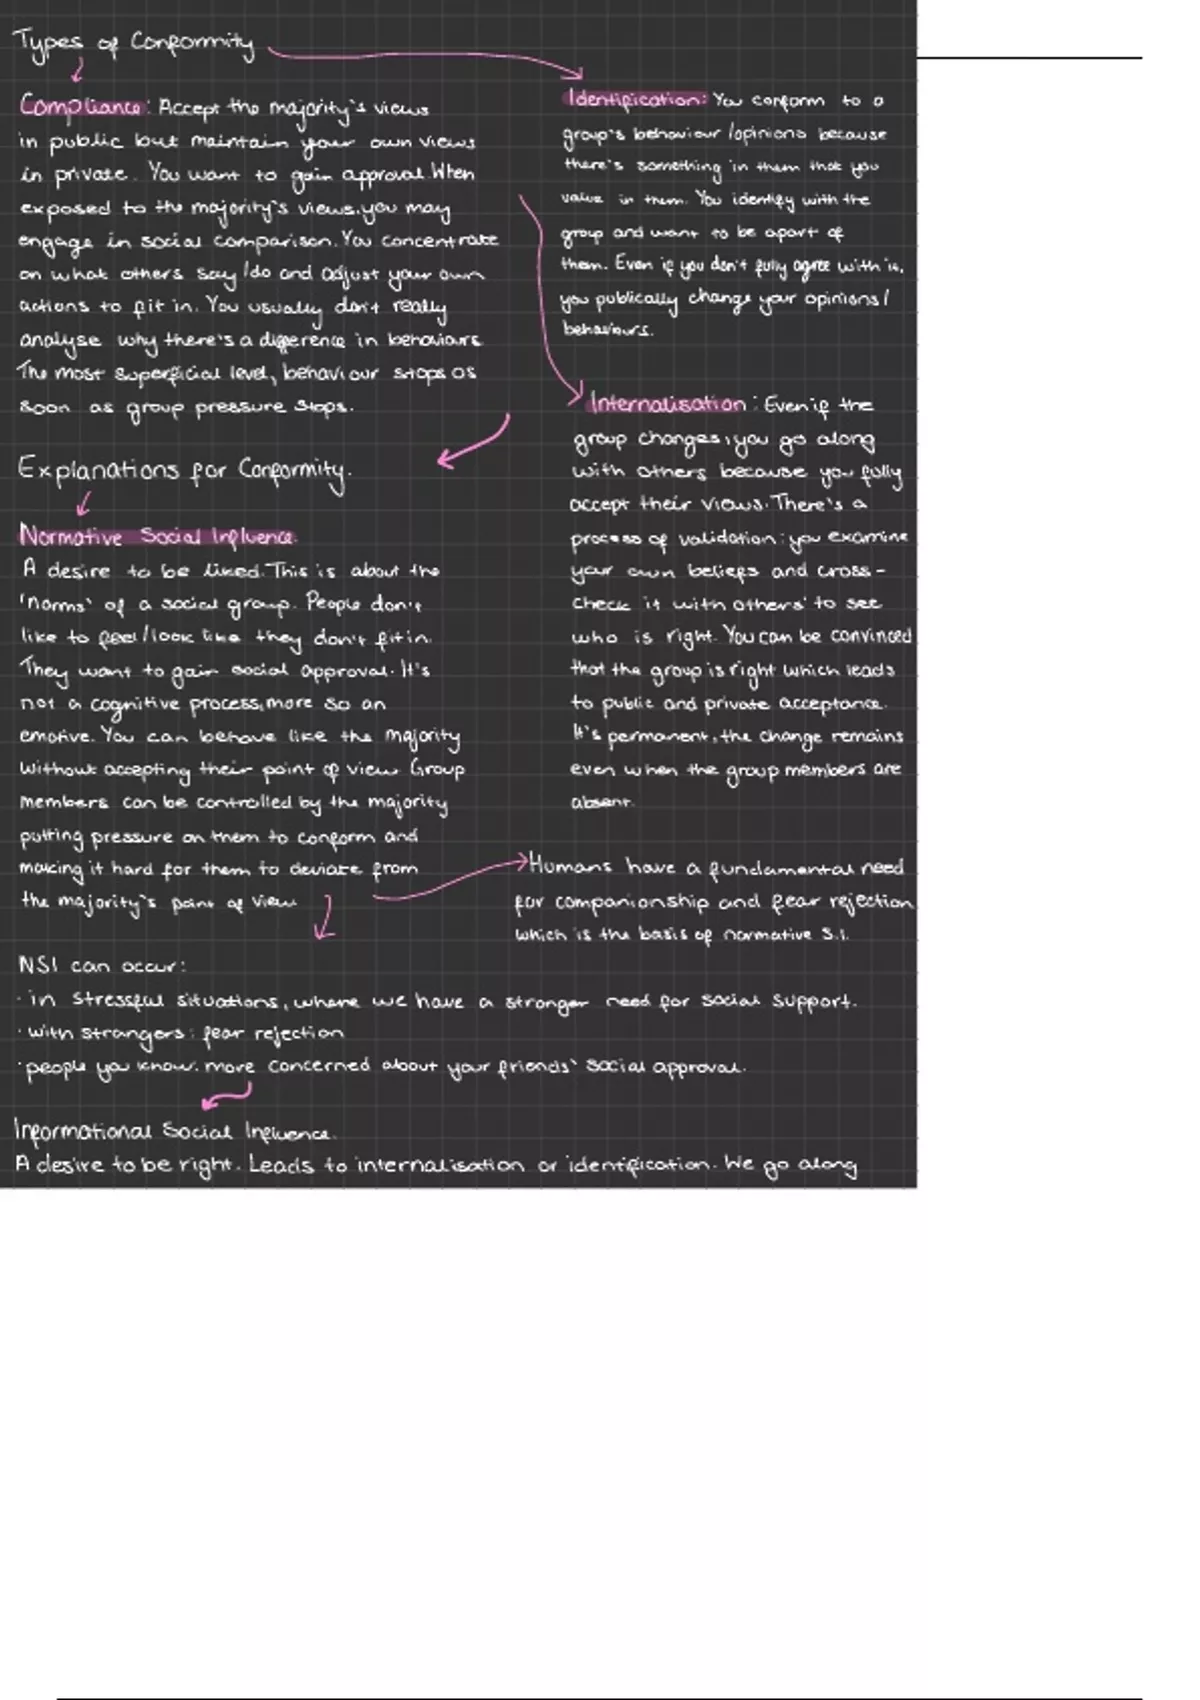 Types of Conformity
Compliance: Accept the majority's views
in public but maintain your own views
in private. You want to gain approval. When
exposed to the majority's views, you may
engage in social comparison. You concentrate
on what others say/do and adjust your own
actions to fit in. You usually don't really
analyse why there's a difference in behaviours
The most superficial level, behaviour stops as
soon as group pressure stops.
Identification: You conform to a
group's behaviour/opinions because
there's something in them that you
value in them. You identify with the
group and want to be apart of
them. Even if you don't fully agree with it,
you publically change your opinions/
behaviours.
Internalisation: Even if the
group changes, you go along
with others because you fully
accept their views. There's a
process of validation: you examine
your own beliefs and cross-
check it with others' to see
who is right. You can be convinced
that the group is right which leads
to public and private acceptance.
It's permanent, the change remains
even when the group members are
absent.
Explanations for Conformity.
Normative Social Influence.
A desire to be liked. This is about the
'norms' of a social group. People don't
like to feel/look like they don't fit in.
They want to gain social approval. It's
not a cognitive process, more so an
emotive. You can behave like the majority
without accepting their point of view. Group
members can be controlled by the majority
putting pressure on them to conform and
making it hard for them to deviate from
the majority's point of view
Humans have a fundamental need
for companionship and fear rejection
which is the basis of normative S.I.
NSI can occur:
· in stressful situations, where we have a stronger need for social support.
· with strangers: fear rejection
· people you know: more concerned about your friends' social approval.
Informational Social Influence.
A desire to be right. Leads to internalisation or identification. We go along